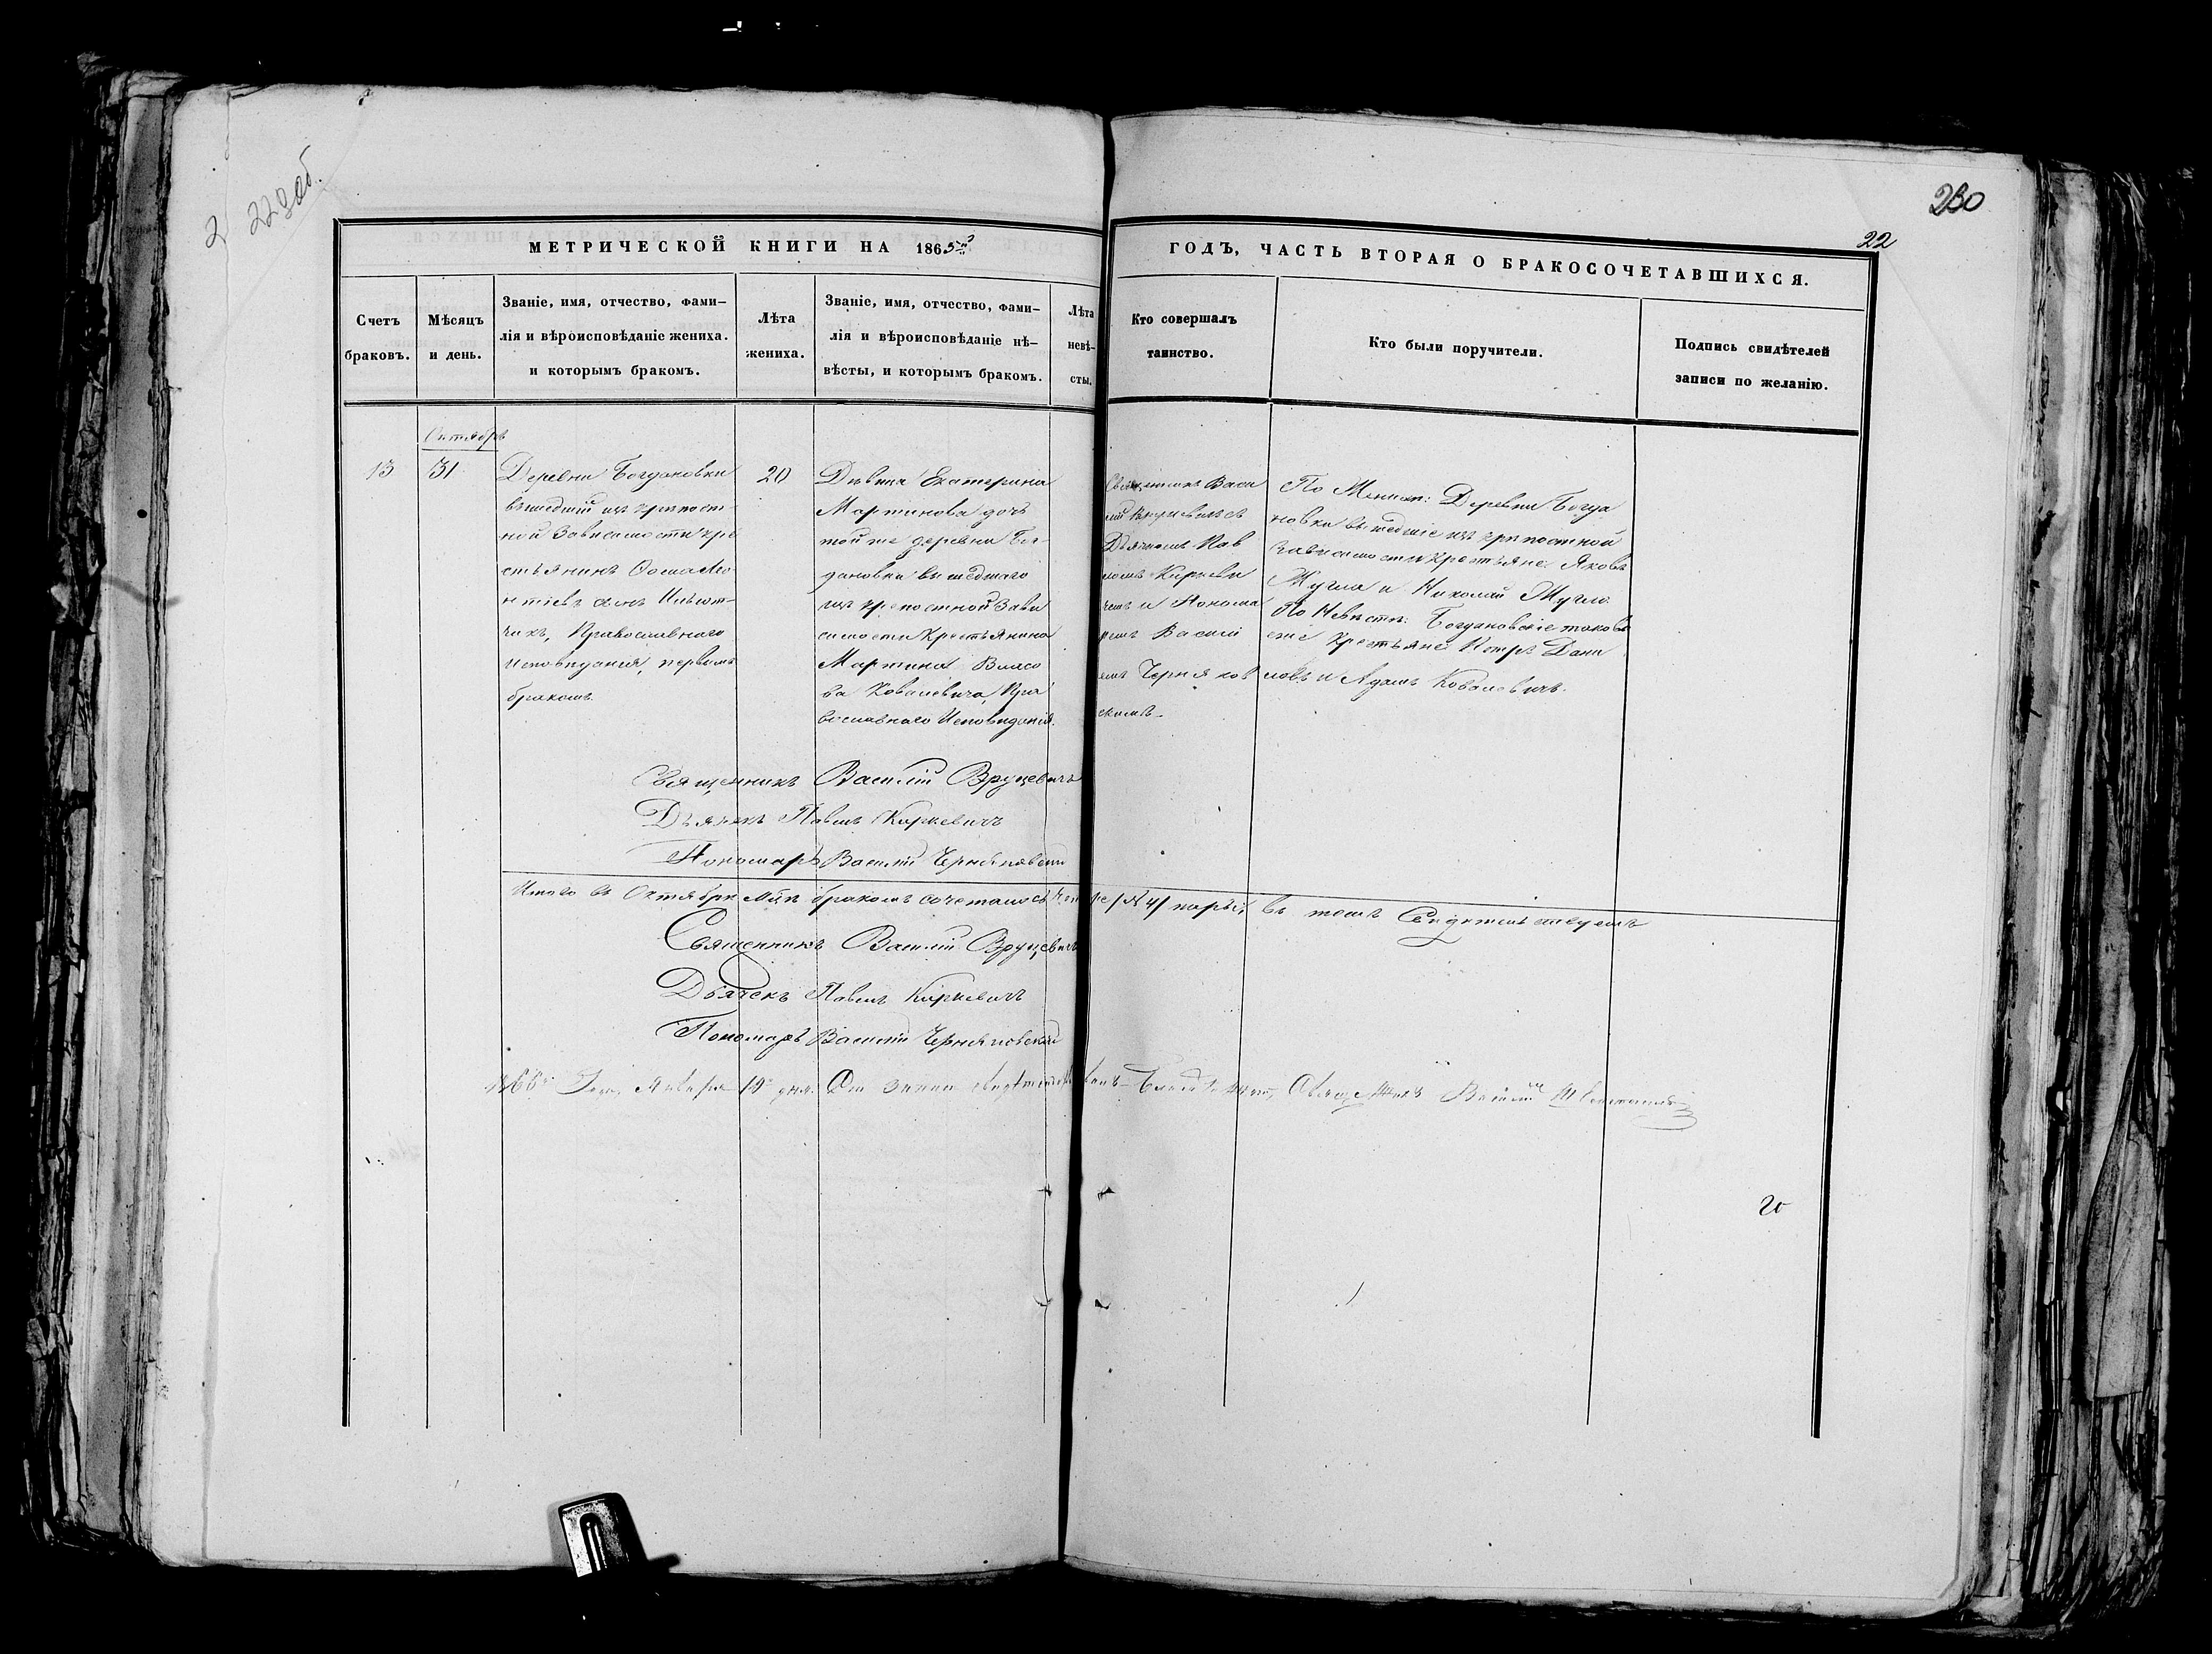 229об.
230
22
МЕТРИЧЕСКОЙ КНИГИ НА 1865й
ГОДЪ, ЧАСТЬ ВТОРАЯ О БРАКОСОЧЕТАВШИХСЯ.
Счетъ
браковъ.
Мѣсяцъ
и день.
Званіе, имя, отчество, фами-
лія и вѣроисповѣданіе жениха.
и которымъ бракомъ.
Лѣта
жениха.
Званіе, имя, отчество, фами-
лія и вѣроисповѣданіе нѣ-
вѣсты, и которымъ бракомъ.
Лѣта
невѣ-
сты.
Кто совершалъ
таинство.
Кто были поручители.
Подпись свидѣтелей
записи по желанію.
Октябрь
13
31.
Деревни Богдановки
вышедшій изъ крѣпост-
ной зависимости кре
стьянинъ Ѳома Ле
сынъ
Православнаго
Исповѣданія, первымъ
бракомъ.
20
Дѣвица Екатерина
Мартинова дочь
той же деревни Бог-
дановки вышедшаго
изъ крѣпостной зави
симости Крестьянина
Мартина Власо
ва Ковалевича, Пра
вославнаго Исповѣданія.
Священникъ Васи
лій Вруцевичъ съ
Дьячкомъ Пав
ломъ Киркеви
чемъ и Понома
ремъ Василі
емъ Черняков
скимъ.
По Женихѣ: Деревни Богда
новки вышедшіе изъ крѣпостной
зависимости крестьяне Яковъ
и Николай
По Невѣстѣ: Богдановскіе таковы
еже крестьяне Петръ Дани
ловъ и Адамъ Ковалевичъ.
Священникъ Василій Вруцевичъ
Дьячекъ Павелъ Киркевичъ
Пономарь Василій Черняковскій
Итого въ Октябрѣ м-цѣ бракомъ сочеталось четыре /№ 4/ пары, въ томъ Свидѣтельствуемъ
Священникъ Василій Вруцевичъ
Дьячекъ Павелъ Киркевичъ
Пономарь Василій Черняковскій
Года, Января 19 дня. Священникъ
20